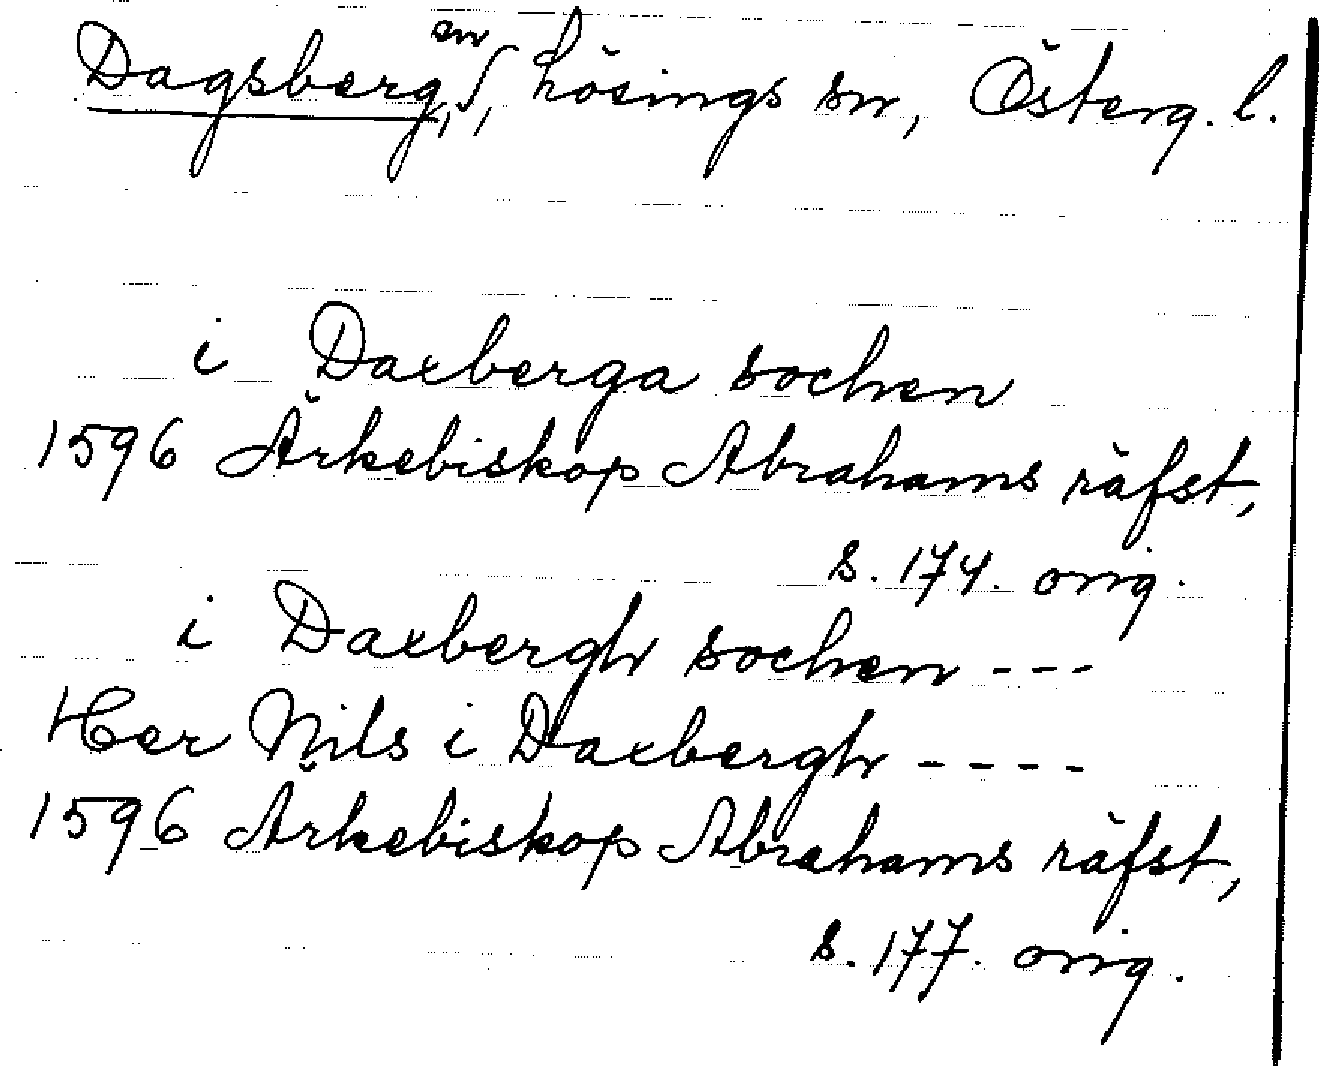 Dagsberg, sn, Lösings sn, Österg. l.
i Daxberga sochen
1596 Ärkebiskop Abrahams räfst,
s. 174. orig.
i Daxbergh sochen - - -
Her Nils i Daxbergh - - - -
1596 Ärkebiskop Abrahams räfst,
s. 177. orig.